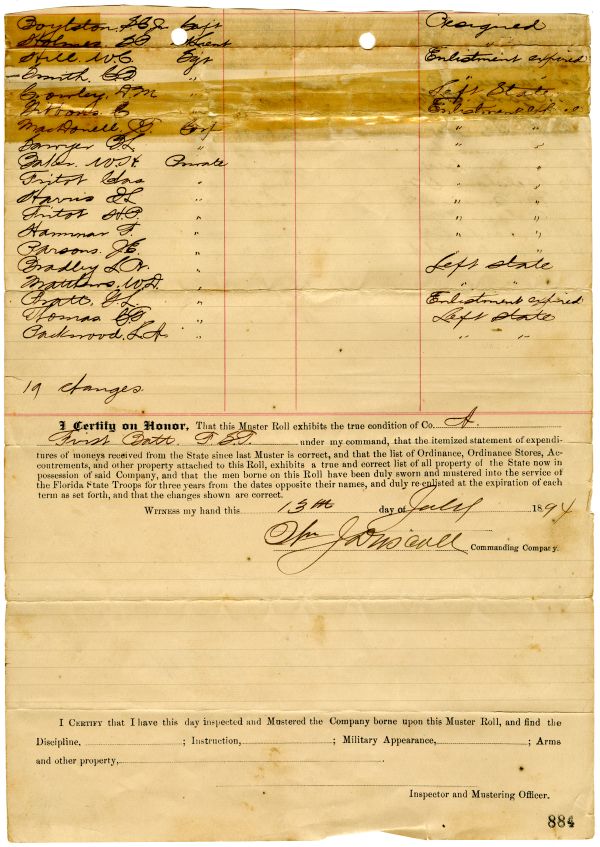 Boylston, Capt Resigned
Holmes
Hill. W. C Sgt Enlistment expired
Smith,
Crowley, A. M Left State
Gibbons C Enlistment
MacDonell, Corp " "
Sawyer " " "
Baker. Private " "
Fritot Chas " " "
Harris " " "
Fritot H. P. " " "
Hammar F. " " "
Parsons. J. E. " "
Bradley L. " Left State
Matthews, W. D. " " "
Pratt, " Enlistment expired
Thomas " Left State
Packwood, " " "
19 changes.
I Certify on Honor, That this Muster Roll exhibits the true condition of Co. A.
First Batt. F. S. T. under my command, that the itemized statement of expendi-
tures of moneys received from the State since last Muster is correct, and that the list of Ordinance, Ordinance Stores, Ac-
contrements, and other property attached to this Roll, exhibits a true and correct list of all property of the State now in
possession of said Company, and that the men borne on this Roll have been duly sworn and mustered into the service of
the Florida State Troops for three years from the dates opposite their names, and duly re-enlisted at the expiration of each
term as set forth, and that the changes shown are correct.
Witness my hand this 13th day of July 1894
Wm J Driscoll Commanding Company.
I Certify that I have this day inspected and Mustered the Company borne upon this Muster Roll, and find the
Discipline, ; Instruction, ; Military Appearance, ; Arms
and other property, .
Inspector and Mustering Officer.
884